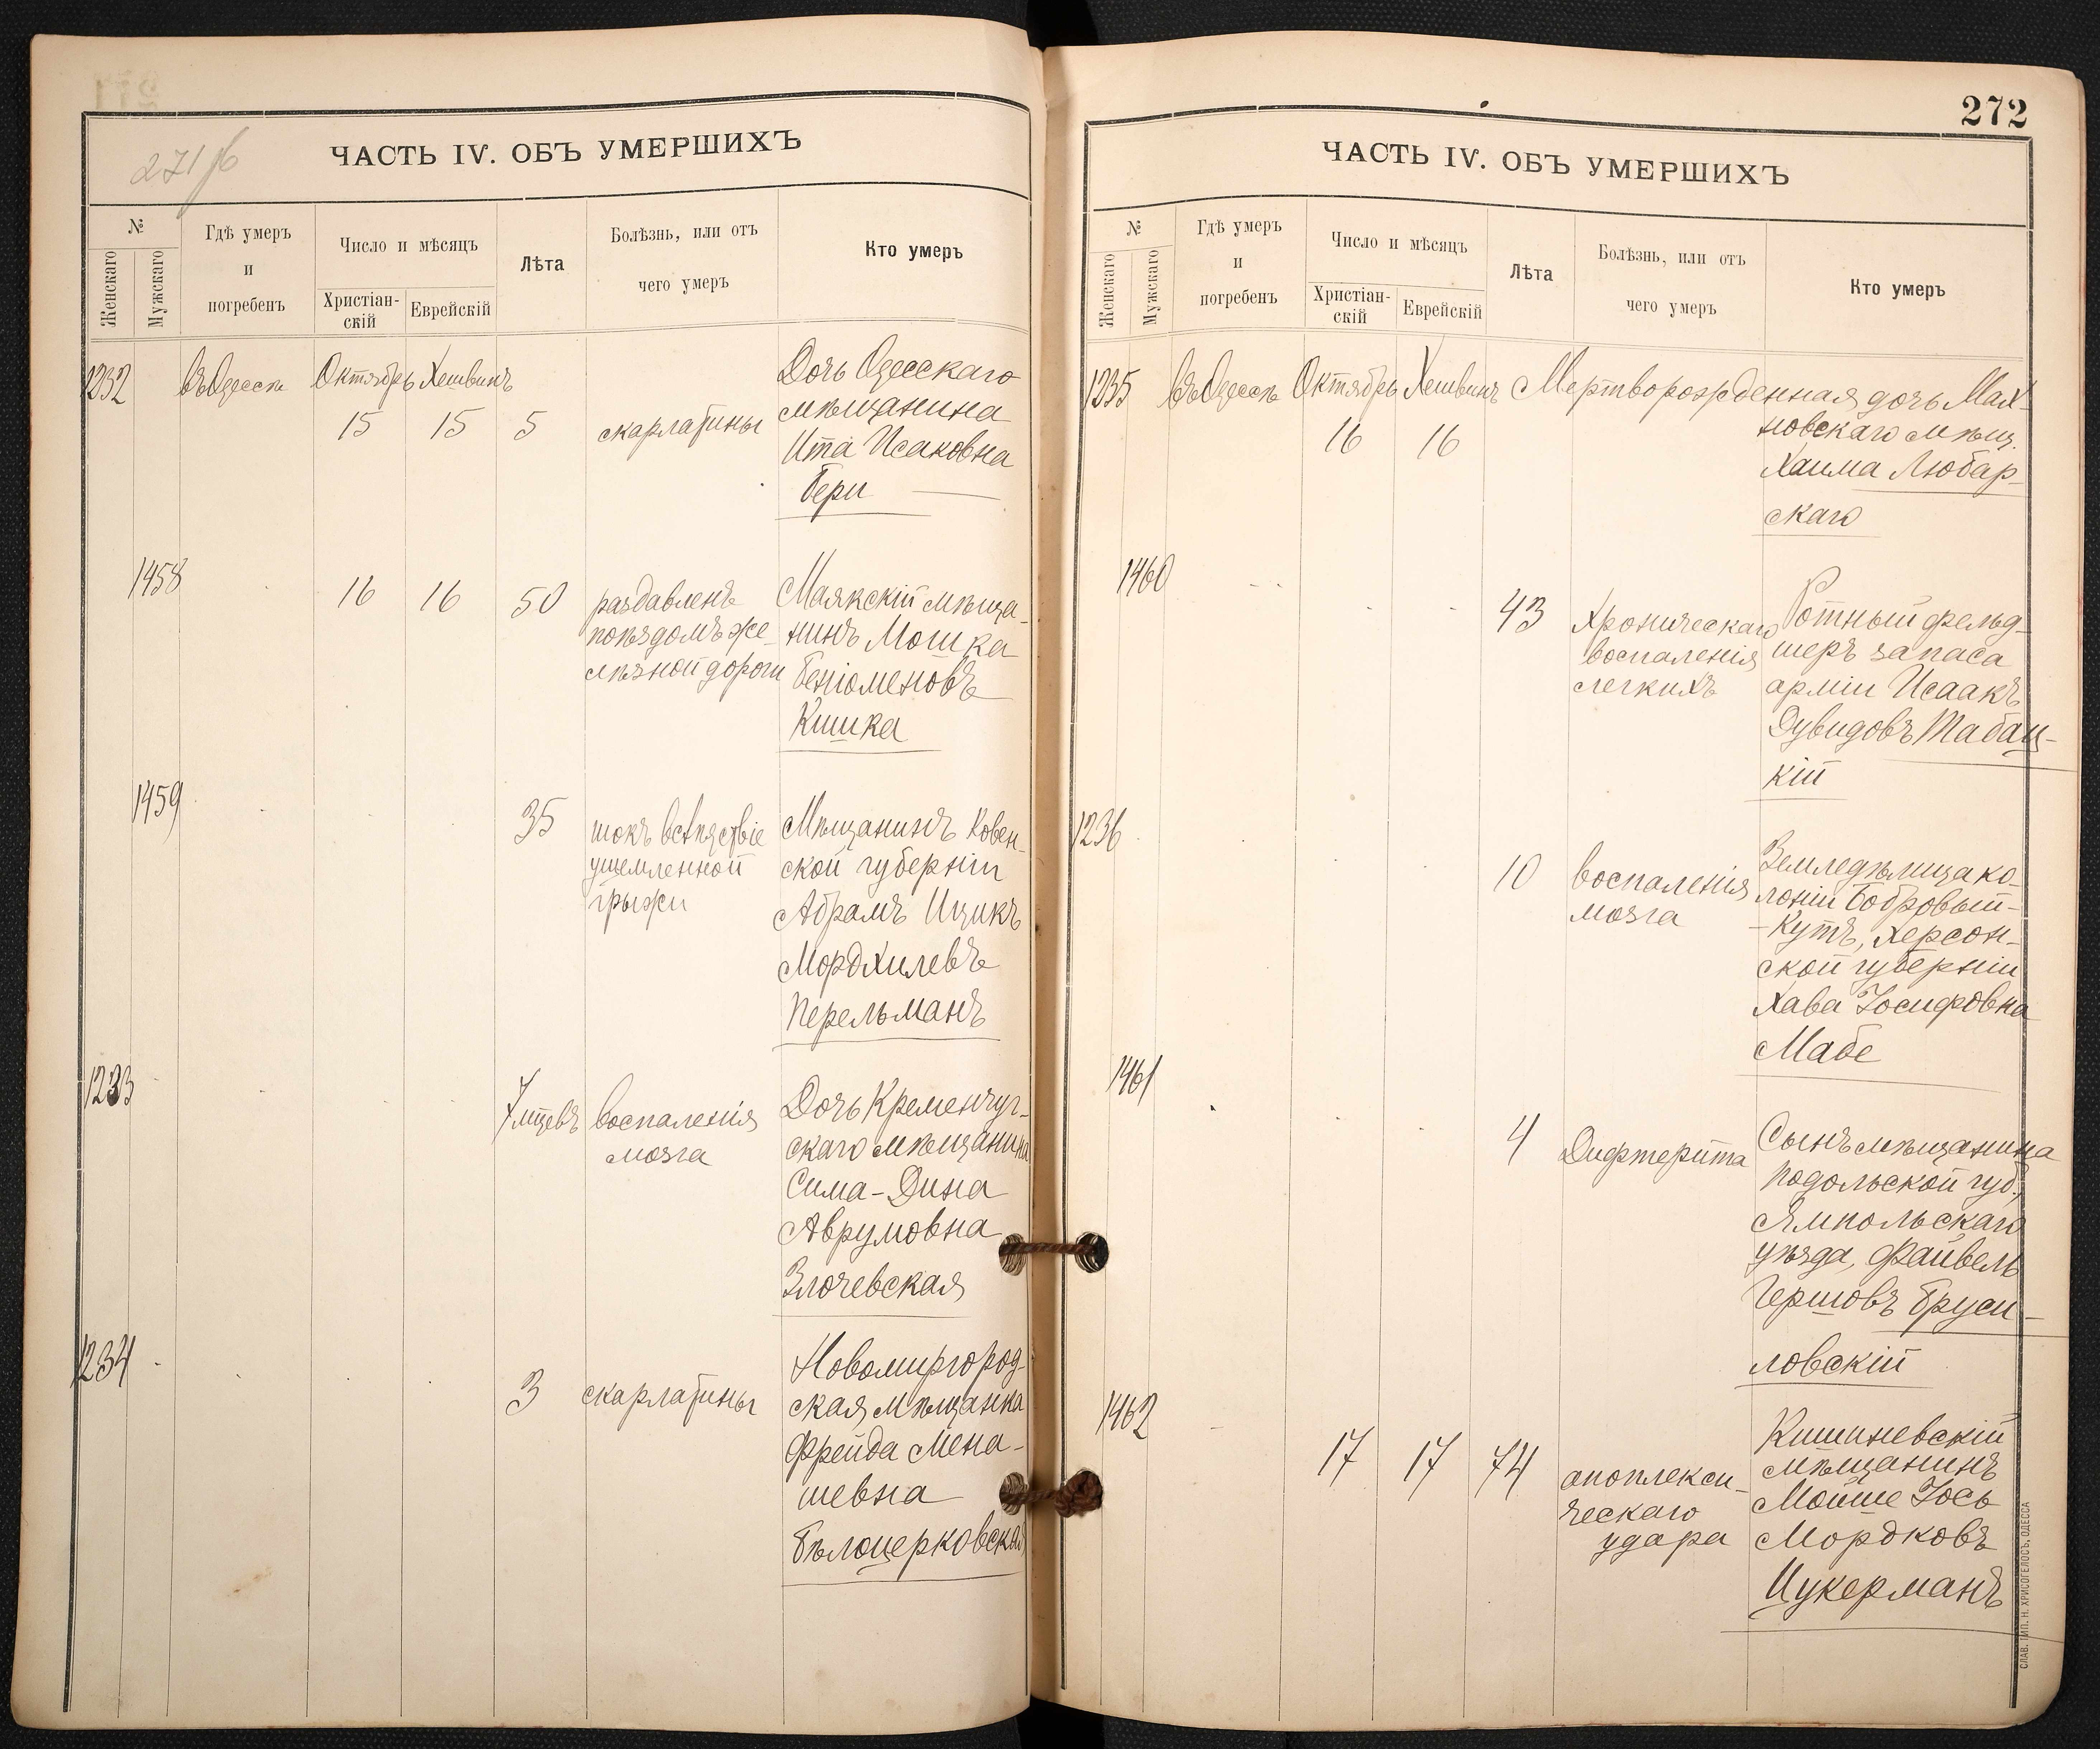 271об
ЧАСТЬ IV. ОБЪ УМЕРШИХЪ
№
Женскаго
Мужскаго
Гдѣ умеръ
и
погребенъ
Число и мѣсяцъ
Христіан-
скій
Еврейскій
Лѣта
Болѣзнь, или отъ
чего умеръ
Кто умеръ
1232 Въ Одессѣ Октябрь Хешвинъ
15 15 5 скарлатины
Дочь Одесскаго
мѣщанина
Ита Исаковна
Бери
1458 16 16 50
раздавленъ
поѣздомъ же-
лѣзной дороги
Маякскій мѣща-
нинъ Мошка
Беніоменовъ
Кишка
1459 35
шокъ вслѣдствіе
ущемленной
грыжи
Мѣщанинъ Ковен-
ской губерніи
Абрамъ Ицикъ
Мордхилевъ
Перельманъ
1233 7 мцевъ
воспаленія
мозга
Дочь Кременчуг-
скаго мѣщанина
Сима-Дина
Аврумовна
Злочевская
1234 3 скарлатины
Новомиргород-
ская мѣщанка
Фрейда Мена-
шевна
Бѣлоцерковская
272
ЧАСТЬ IV. ОБЪ УМЕРШИХЪ
№
Женскаго
Мужскаго
Гдѣ умеръ
и
погребенъ
Число и мѣсяцъ
Христіан-
скій
Еврейскій
Лѣта
Болѣзнь, или отъ
чего умеръ
Кто умеръ
1235 Въ Одессѣ Октябрь Хешвинъ Мертворожденная дочь Мах-
16 16
новскаго мѣщ.
Хаима Любар-
скаго
1460 43
Хроническаго
воспаленія
легкихъ
Ротный фельд-
шеръ запаса
арміи Исаакъ
Дувидовъ Табац-
кій
1236 10
воспаленія
мозга
Земледѣлица ко-
лоніи Бобровый-
-Кутъ, Херсон-
ской губерніи
Хава Іосифовна
Мабе
1461 4 Дифтерита
Сынъ мѣщанина
Подольской губ.,
Ямпольскаго
уѣзда, Файвель
Гершовъ Бруси-
ловскій
1462 17 17 74
апоплекси-
ческаго
удара
Кишиневскій
мѣщанинъ
Мойше Іось
Мордковъ
Цукерманъ
СЛАВ. ТИП. Н. ХРИСОГЕЛОСЪ, ОДЕССА